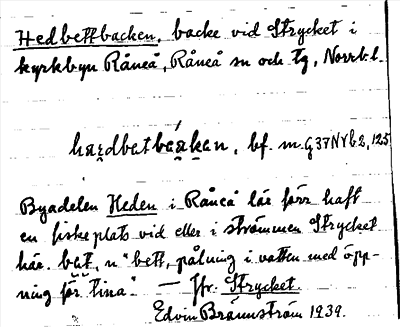 Hedbettbacken, backe vid Strycket i
kyrkbyn Råneå, Råneå sn och tg, Norrb.l.
bf. m. G37NYb2, 125
Byadelen Heden i Råneå lär förr haft
en fiskeplats vid eller i strömmen Strycket
här. bat, n "bett, pålning i vatten med öpp-
ning för tina". — Jfr. Strycket.
Edvin Brännström 1939.